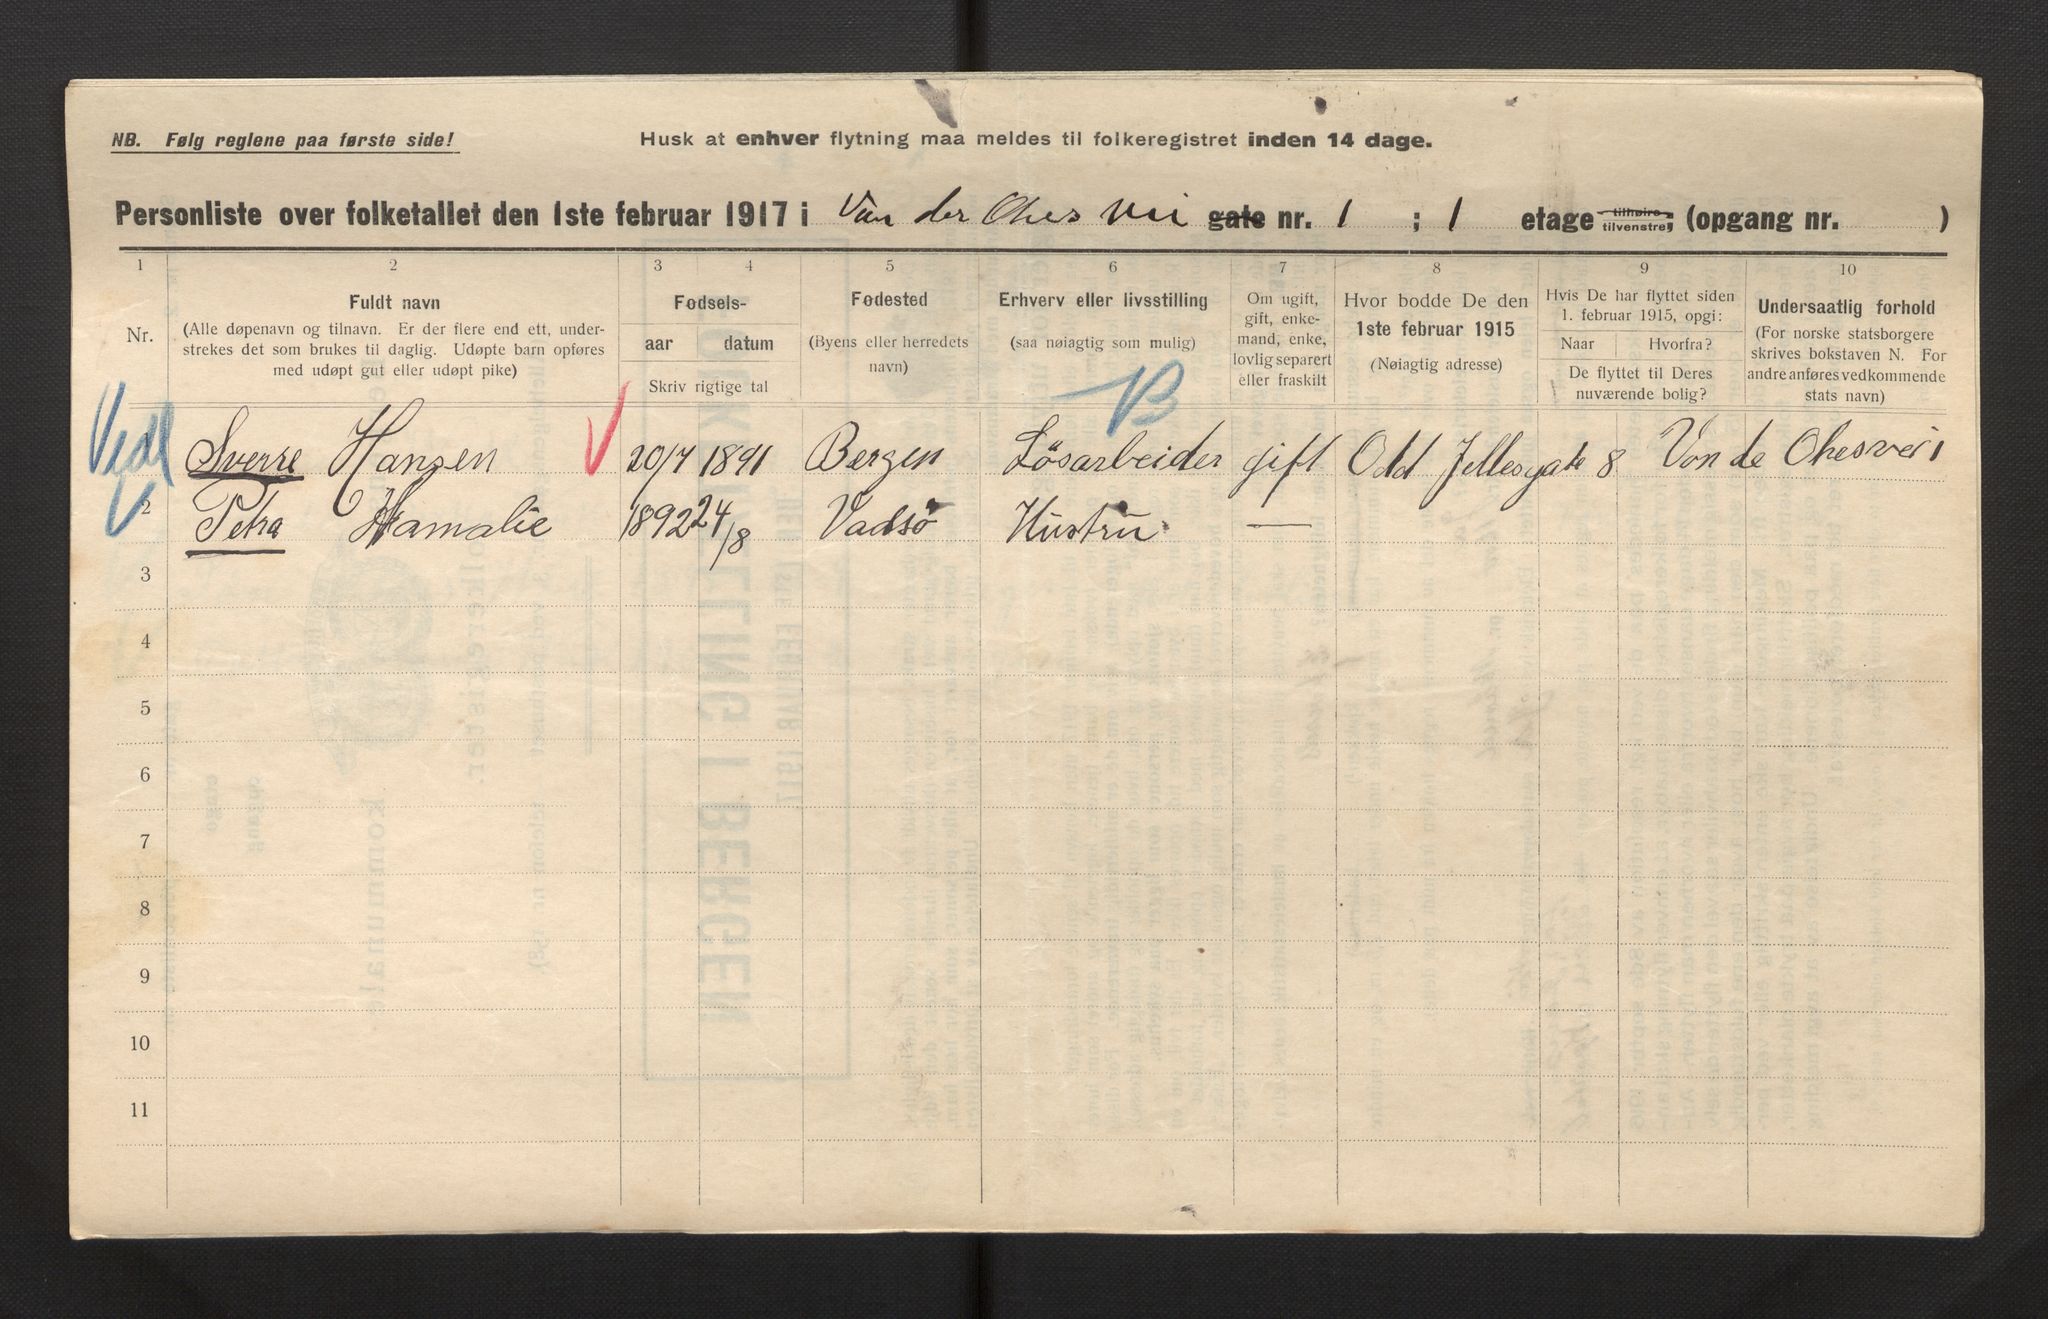 NB. Følg reglene paa første side!
Husk at enhver flytning maa meldes til folkeregistret inden 14 dage.
Personliste over folketallet den 1ste februar 1917 i Van der Ohes Vei gate nr. 1 ; 1 etage tilhøire tilvenstre, (opgang nr. )
1 2 3 4 5 6 7 8 9 10
Nr.
Fuldt navn
(Alle døpenavn og tilnavn. Er der flere end ett, under-
strekes det som brukes til daglig. Udøpte barn opføres
med udøpt gut eller udøpt pike)
Fødsels-
aar datum
Skriv rigtige tal
Fødested
(Byens eller herredets
navn)
Erhverv eller livsstilling
(saa nøiagtig som mulig)
Om ugift,
gift, enke-
mand, enke,
lovlig separert
eller fraskilt
Hvor bodde De den
1ste februar 1915
(Nøiagtig adresse)
Hvis De har flyttet siden
1. februar 1915, opgi:
Naar Hvorfra?
De flyttet til Deres
nuværende bolig?
Undersaatlig forhold
(For norske statsborgere
skrives bokstaven N. For
andre anføres vedkommende
stats navn)
B
Sverre Hansen V 20/7 1891 Bergen Løsarbeider gift Odd Jellesgate 8 Von de Ohesvei 1
2 Petra Hamalie 1892 24/8 Vadsö Hustru —
3
4
5
6
7
8
9
10
11